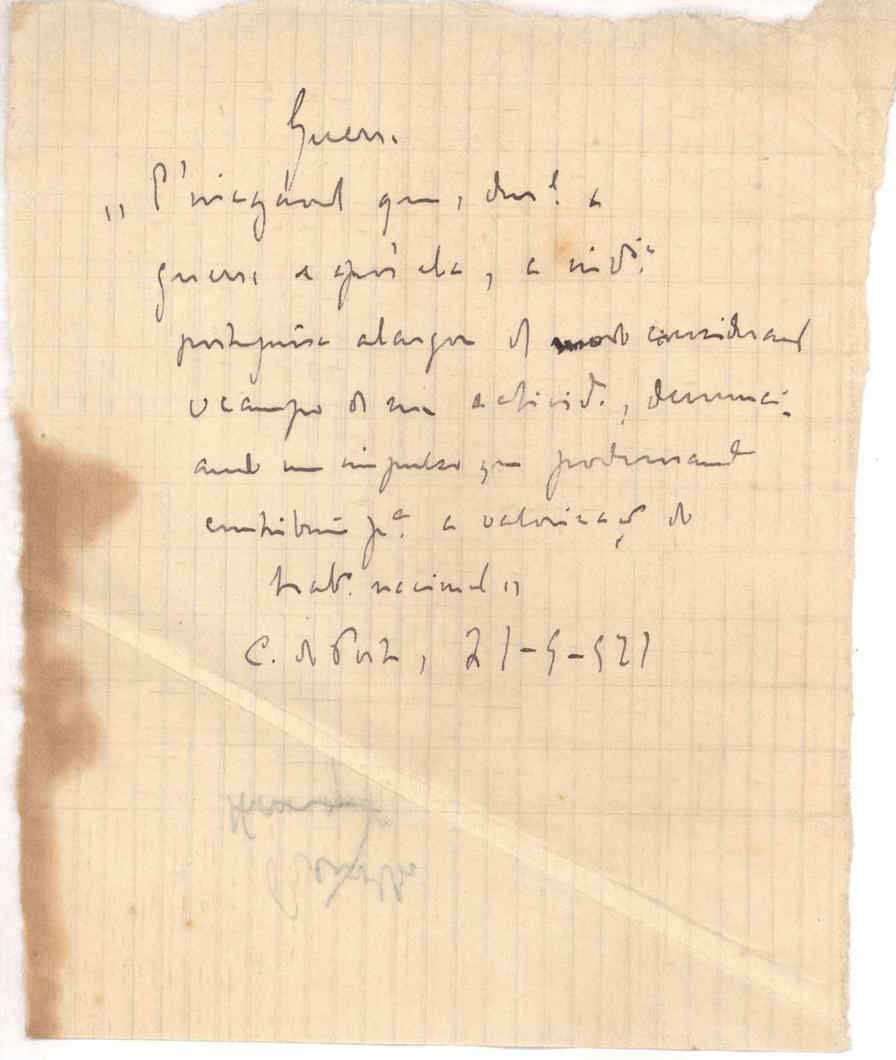 Guerra
„ É inegável que, dur.e a
guerra e após ela, a ind.a
portuguesa alargou de modo consideravel
o campo de sua activid.e, denunci-
ando um impulso que poderosamente
contribuiu p.a a valorização do
trab.o nacional „
C. do Porto, 21-5-921